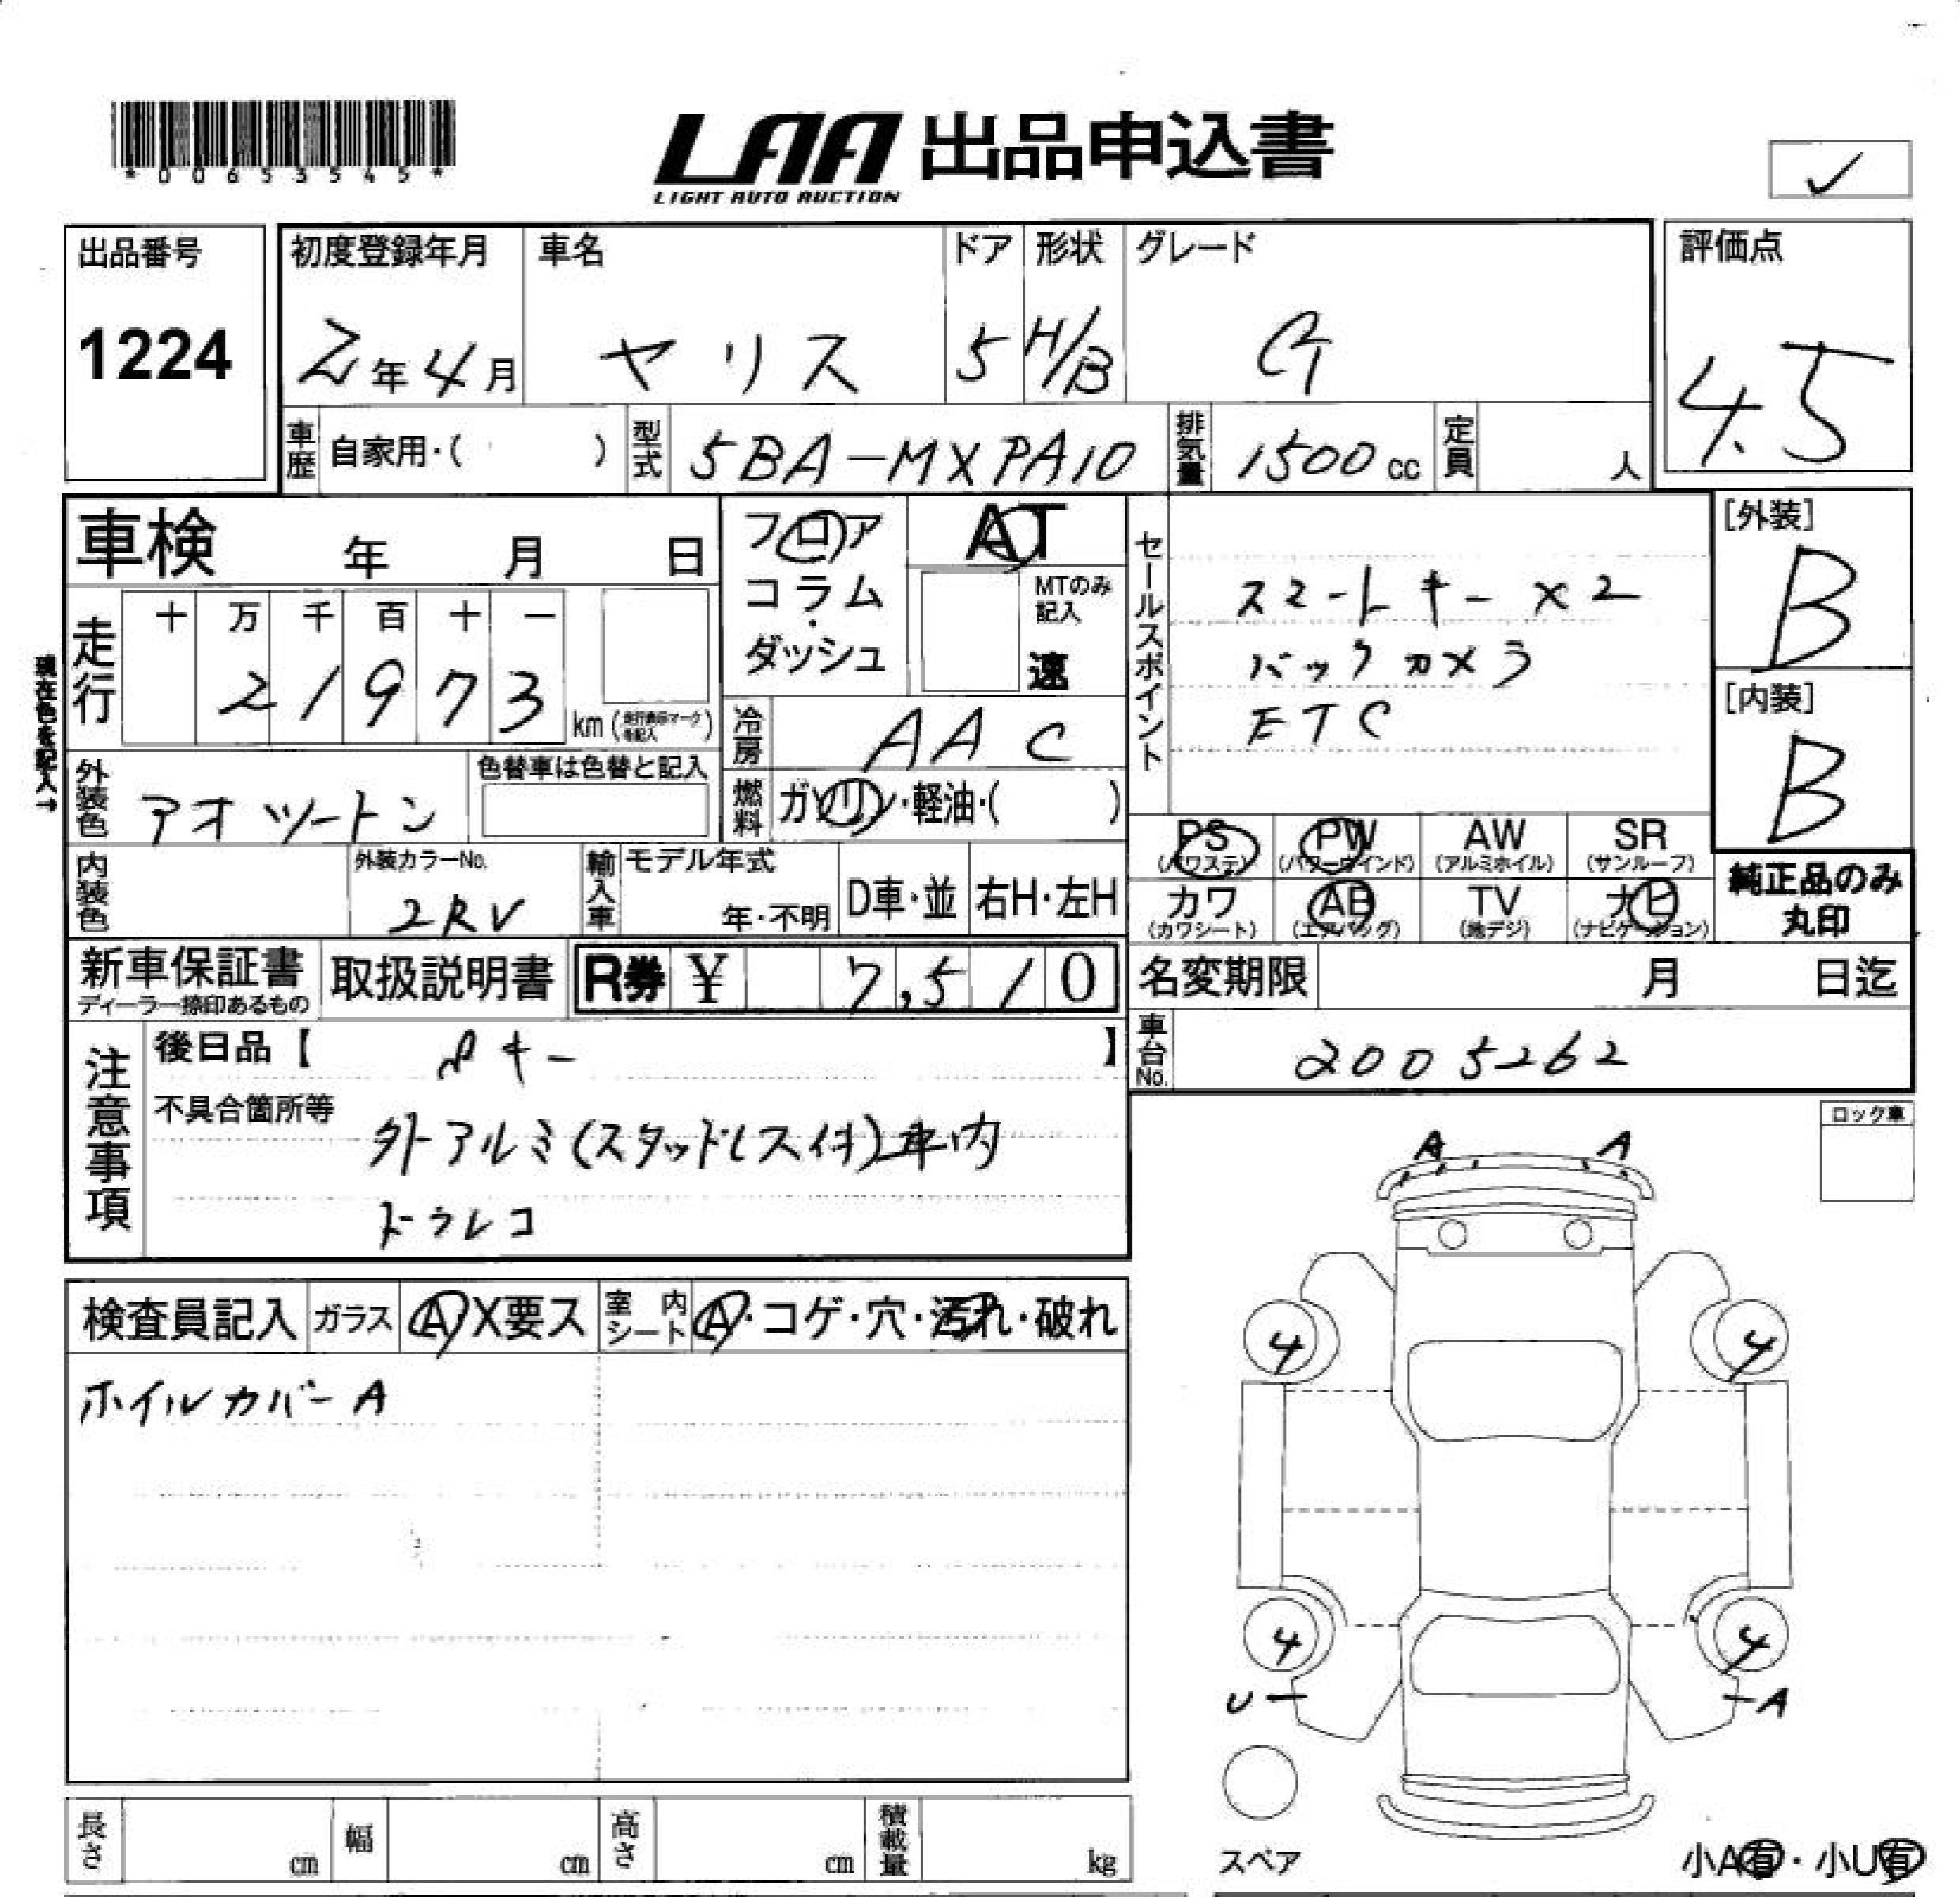 *00653545*
LAA 出品申込書
LIGHT AUTO AUCTION
✓
出品番号
1224
初度登録年月
2年4月
車名
ヤリス
ドア
5
形状
H/B
グレード
G
評価点
4.5
車歴
自家用・( )
型式
5BA-MXPA10
排気量
1500cc
定員
人
車検 年 月 日
フロア
コラム・
ダッシュ
AT
MTのみ
記入
速
セールスポイント
スマートキー×2
バックカメラ
ETC
[外装]
B
[内装]
B
現在色を記入→
走行
十 万 千 百 十 一
2 1 9 7 3
km(走行表示マークを記入)
冷房
AAC
外装色
アオツートン
色替車は色替と記入
燃料
ガソリン・軽油・( )
PS
(パワステ)
PW
(パワーウインド)
AW
(アルミホイル)
SR
(サンルーフ)
内装色
外装カラーNo.
2RV
輸入車
モデル年式
年・不明
D車・並
右H・左H
カワ
(カワシート)
AB
(エアバッグ)
TV
(地デジ)
ナビ
(ナビゲーション)
純正品のみ
丸印
新車保証書
ディーラー捺印あるもの
取扱説明書
R券 ¥ 7,510
名変期限 月 日迄
注意事項
後日品【 キー 】
不具合箇所等
外アルミ(スタッドレス付)車内
ドラレコ
車台No.
2005262
ロック車
A A
検査員記入
ガラス
A X要ス
室内シート
A・コゲ・穴・汚れ・破れ
ホイルカバーA
4 4
4 4
U A
スペア
小A有・小U有
長さ cm
幅 cm
高さ cm
積載量 kg